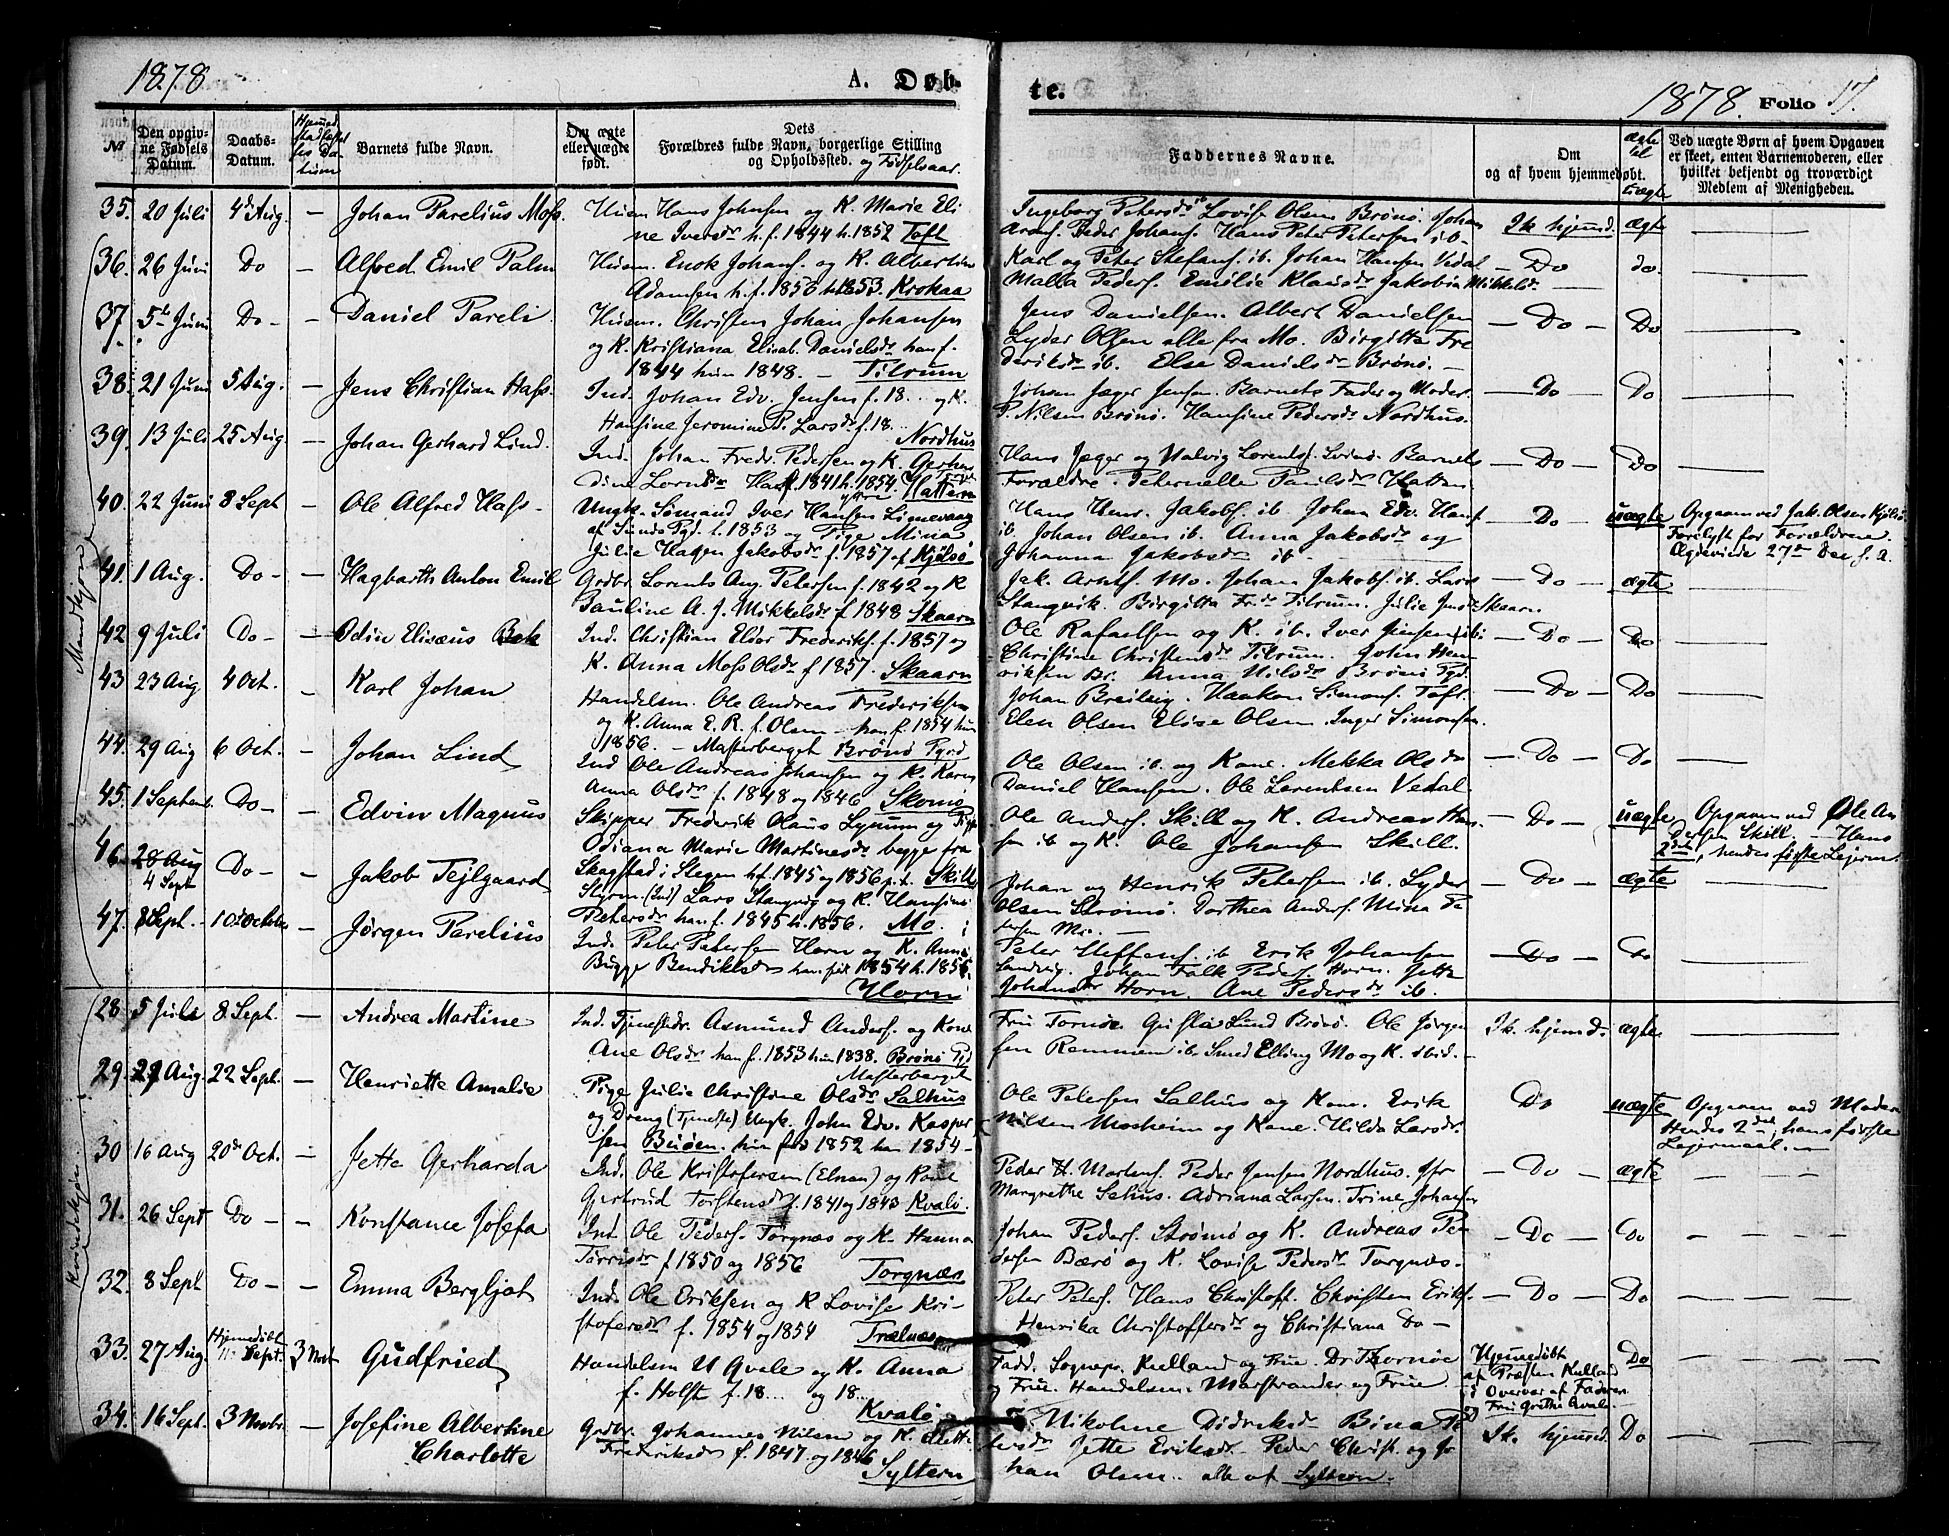 1878
A. Døb-
№
Den opgiv-
ne Fødsels
Datum.
Daabs-
Datum.
Barnets fulde Navn.
Om ægte
eller uægte
født.
Dets
Forældres fulde Navn, borgerlige Stilling
og Opholdssted. og Fødselsaar.
35. 20 Juli 4de Aug. — Johan Parelius Moss.
Husm Hans Johnsen og K. Marie Eli
ne Iversdr h. f. 1844 h. 1852 Toft
36. 26 Juni Do — Alfred Emil Palm
Husm. Enok Johans. og K. Albertine
Adamsen h. f. 1853. Krokaa
37. 5te Juni Do — — Daniel Pareli
Husm. Christen Johan Johansen
og K. Kristiana Elisab. Danielsdr han f.
1844 hun 1848. — Tilrum
38. 21 Juni 5 Aug. — Jens Christian Hass.
Ind. Johan Edv. Jensen f. 18... og K.
Hansine Jeromine P. Larsdr f. 18...
Nordhus
39. 13 Juli 25 Aug — Johan Gerhard Lind.
Ind. Johan Fredr. Pedersen og K. Gerhar
dine f. 1841 h. 1854. Hatten
40. 22 Juni 8 Sept — Ole Alfred Hass —
Ungk. Sømand Iver Hansen
f. 1853 og Pige Mina
Julie Hagen Jakobsdr f. 1857 af Kjølsø
41. 1 Aug. Do — — Hagbarth Anton Emil
Grdbr. Lorents Aug. Petersen f. 1842 og K
Pauline A. J. Mikkelsdr f 1848 Skaarn
42 9 Juli Do — — Odin Elisæus Bek
Ind. Christian Elder Frederiks. f. 1857 og
K. Anna Moss Olsdr f 1857. Skaarn
43 23 Aug 4 Oct. — Karl Johan
Handelsm. Ole Andreas Frederiksen
og K. Anna E. R. f. Olsen — han f. 1854 hun
1856. — Masterberget Brønø Pgrd
44. 29 Aug 6 Oct. — Johan Lind
Ind Ole Andreas Johansen og K. Karen
Anna Olsdr f. 1848 og 1846 Skomo
45. 1 Septemb. Do — — Edvin Magnus
Skipper Frederik Olaus Lynum og Pige
Odiana Marie Martinesdr begge fra
Skagstad i Stegen h f. 1845 og 1856 p. t. Skille
46. 28 Aug
4 Sept Do — — Jakob Tejlgaard
Styrm. (Ind) Lars Stangvig og K. Hansine
Petersdr han f. 1845 h. 1856. Mo.
47. 8 Sept. 10de October — Jørgen Parelius
Ind. Peter Petersen Horn og K. Anne
Bugge Bendiktsdr han født 1854 h. 1856.
Horn
Mandkjøn
28. 5 Juli 8 Sept. — Andrea Martine
Ind. Tjenestdr. Asmund Anders. og Kone
Ane Olsdr han f. 1853 hun 1838. Brønø Pgd
Masterberget
29. 27 Aug. 22 Sept. — Henriette Amalie
Pige Julie Christine Olsdr Salhus
og Dreng (Tjenestek) Ungk. John Edv. Kasper
sen Buøen. hun fød 1852 han 1854 —
30 16 Aug 20de Oct. — Jette Gerharda
Ind. Ole Kristofersen (Elnan) og Kone
Gertrud Torstensdr f. 1841 og 1843 Kvalø.
31. 26 Sept Do — — Konstance Josefa
Ind. Ole Peders. Torgnæs og K. Hanna
f 1850 og 1856 Torgnæs
32. 8 Sept Do — — Emma Bergljot
Ind. Ole Eriksen og K Lovise Kri-
stofersdr f. 1854 og 1854 Trælnæs
33. 27 Aug. Hjemmedøbt
11 Sept. 3 Novb Gudfried
Handelsm U Qvale og K. Anna
f. Holst f. 18... og 18...
Kvalø
34. 16 Sept. 3 Novbr — Josefine Albertine
Charlotte
Grdbr. Johannes Nilsen og K. Mette
Fredriksdr f. 1847 og 1846
Sylten
Kvindekjøn
te.
1878. Folio 17.
Faddernes Navne.
Om
og af hvem hjemmedøbt.
ægte
el
uægte
Ved uægte Børn af hvem Opgaven
er skeet, enten Barnemoderen, eller
hvilket bekjendt og troværdigt
Medlem af Menigheden.
Ingeborg Petersdr Lovise Olsen Brønø. Johan
Arons. Peder Johans. Hans Peter Petersen ib. Ik hjemd. ægte
Karl og Peter Stefans. ib. Johan Hansen Vedal — Do do.
Malla Peders. Emilie Klausdr Jakobia Mikkelsdr
Jens Danielsen. Albert Danielsen — Do — Do
Lyder Olsen alle fra Mo. Birgitte Fre
deriksdr ib. Else Danielsdr Brønø. —
Johan Jæger Jensen. Barnets Fader og Moder. — Do — Do
P. Nilsen Brønø. Hansine Pedersdr Nordhus.
Hans Jæger og Halvig Lorents. Barnets — Do — Do
Forældre. Peternelle Paulsdr Hatten
Hans Henr. Jakobs. ib. Johan Edv. Hans. — Do — uægte
ib. Johan Olsen ib. Anna Jakobsdr og
Johanna Jakobsdr ib.
Opgaven ved Jak. Olsen Kjølsø
Forelyst for Forældrene
27de Dec f. A.
Jak. Arnts. Mo. Johan Jakobs. ib. Lars — Do — ægte
Stangvik. Birgitta Frdr Tilrum. Julie Jensdr Skaarn.
Ole Rafaelsen og K. ib. Iver Jensen ibi — Do — Do
Christine Christensdr Tilrum. John Hen-
riksen Br. Anna Nilsdr Brønø Pgd.
Johan Breivig. Haakon Simons. Toft. — Do — Do
Elen Olsen Elise Olsen. Inger Simonsen.
Ole Olsen ib. og Kone. Mekka Olsdr — Do — Do
Daniel Hansen. Ole Lorentsen Vedal.
Ole Anders. Skill og K. Andreas Han — Do — uægte
sen ib og K. Ole Johansen Skill.
Opgaven ved Ole An
dersen Skill. — Hans
2det, hendes første Lejerm.
Johan og Henrik Petersen ib. Lyder — Do — ægte
Olsen Strømø. Dorthea Anders. Mina Pe
tersen Mo. —
Peter Steffens. ib Erik Johansen — Do — Do
Sandvig. Johan Falk Peders. Horn. Jetta
Johansdr Horn. Ane Pedersdr ib.
Fru Tornøe Lund Brønø. Ole Jørgen Ik. hjemd. ægte
sen Remmen ib. Smed Elling Mo og K. ibid. —
Ole Petersen Salhus og Kone. Erik Do uægte
Nilsen Mosheim og Kone. Hilda Larsdr.
Opgaven ved Moder
Hendes 2det, hans første
Lejermaal. —
Peder H. Mortens. Peder Jensen Nordhus. — Do — ægte
Margrethe Selnes. Adriana Larsen. Trine Johansen
Johan Peders. Strømø og K. Andreas Pe — Do — Do
dersen Bærø og K. Lovise Pedersdr Torgnæs.
Peter Peters. Hans Christoff. Christen Eriks. — Do — Do
Henrika Christoffersdr og Christiana Do —
Fadd. Sognepr. Kulland og Frue. Dr Thornøe
og Frue. Handelsm. Marstrander og Frue
Hjemmedøbt
af Præsten Kulland
i Overvær af Faderen
og Fru Grethe Qvale.
Do
Nikoline Didriksdr Bina Pe
tersdr Jette Eriksdr. Peder Christ. og Jo Ik. hjemd. Do
han Olsen.. alle af Sylten.